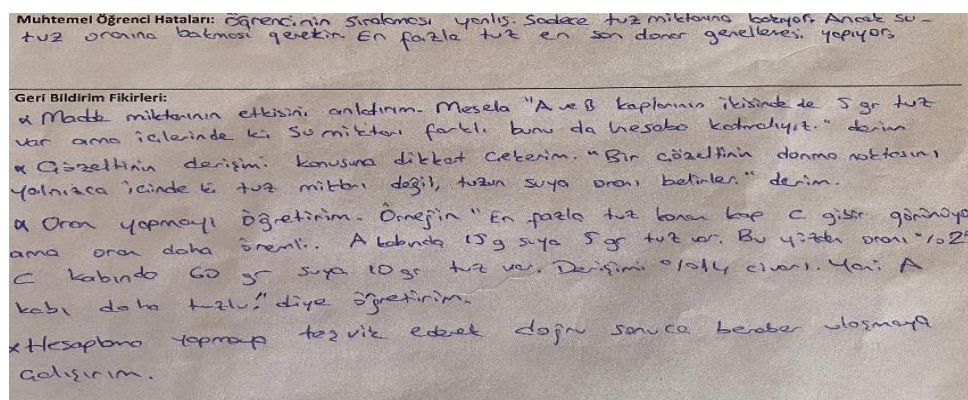 Muhtemel Öğrenci Hataları: Öğrencinin sıralaması yanlış. Sadece tuz miktarına bakıyor. Ancak su-
tuz oranına bakması gerekir. En fazla tuz en son donar genellemesi yapıyor.
Geri Bildirim Fikirleri:
* Madde miktarının etkisini anlatırım. Mesela "A ve B kaplarının ikisinde de 5 gr tuz
var ama içlerinde ki su miktarı farklı bunu da hesaba katmalıyız." derim
* Çözeltinin derişimi konusuna dikkat çekerim. "Bir çözeltinin donma noktasını
yalnızca içinde ki tuz miktarı değil, tuzun suya oranı belirler." derim.
* Oran yapmayı öğretirim. Örneğin "En fazla tuz konan kap C gibi görünüyo
ama oran daha önemli. A kabında 15 g suya 5 gr tuz var. Bu yüzden oranı %25
C kabında 60 gr suya 10 gr tuz var. Derişimi %14 civarı. Yani A
kabı daha tuzlu." diye öğretirim.
* Hesaplama yapmayı teşvik ederek doğru sonuca beraber ulaşmaya
çalışırım.